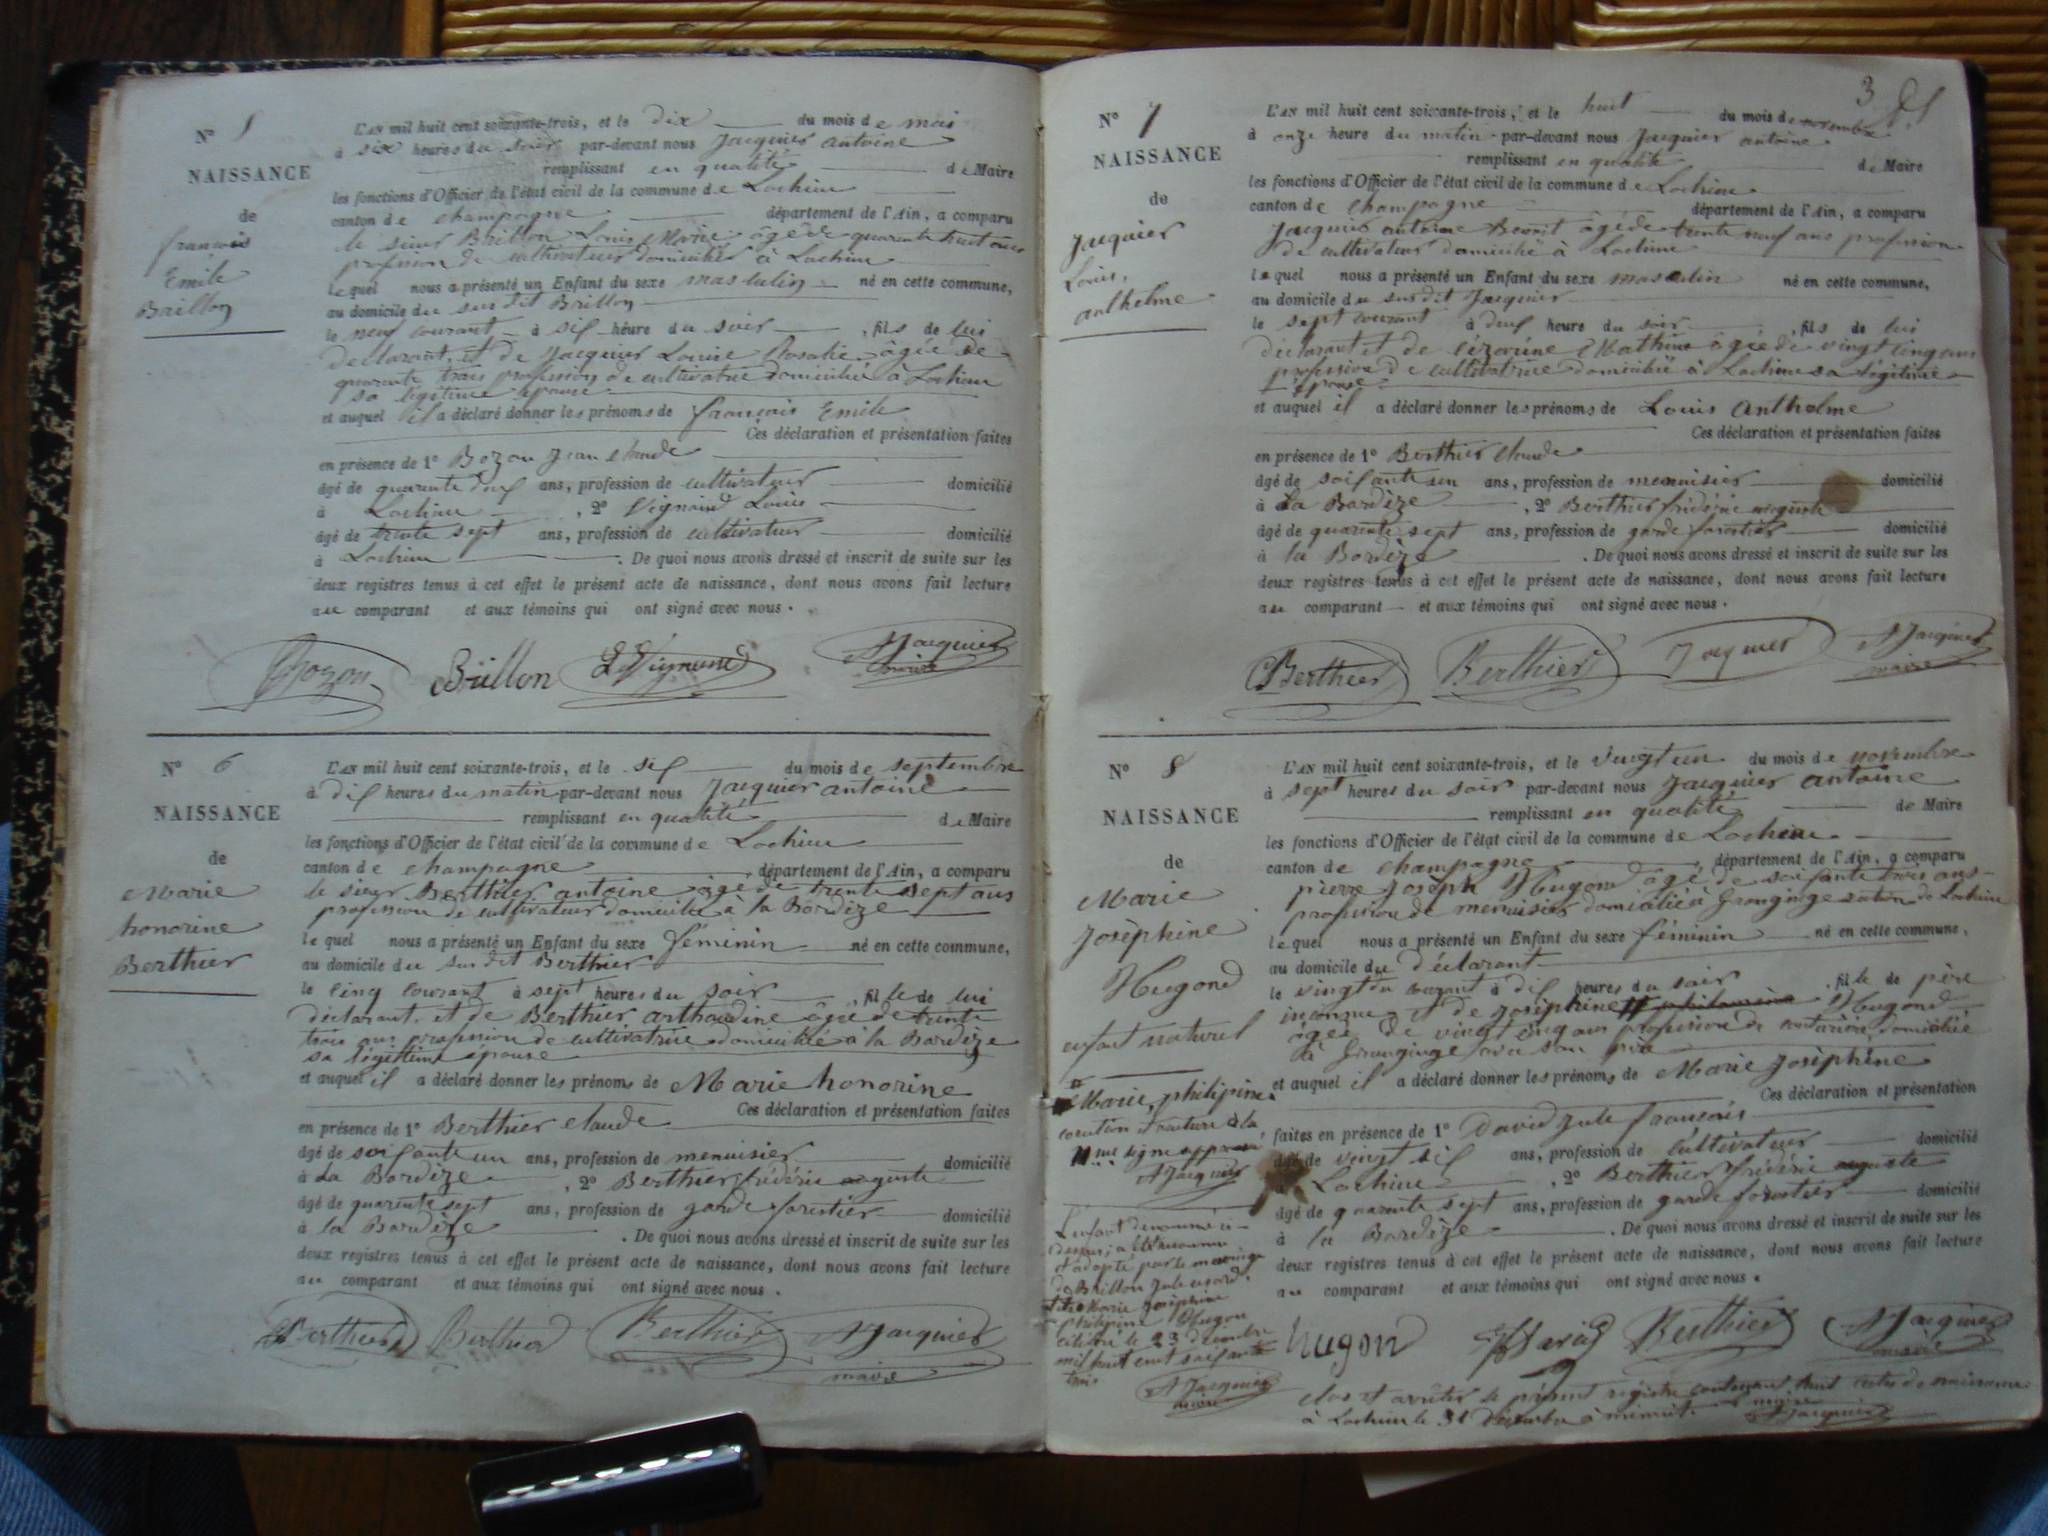 N° 5
NAISSANCE
de
françois
Emile
Brillon
L'AN mil huit cent soixante-trois, et le dix du mois de mai
à six heures du soir par-devant nous Jacquier antoine
remplissant en qualité de Maire
les fonctions d'Officier de l'état civil de la commune de Lochieu
canton de champagne département de l'Ain, a comparu
le sieur Brillon Louis Marie âgé de quarante huit ans
profession de cultivateur domicilié à Lochieu
lequel nous a présenté un Enfant du sexe masculin né en cette commune,
au domicile du sus dit Brillon
le neuf courant à six heure du soir, fils de lui
déclarant, et de Jacquier Louise Rosalie âgée de
quarante trois profession de cultivatrice domicilié à Lochieu
sa légitime épouse
et auquel il a déclaré donner les prénoms de françois Emile
Ces déclaration et présentation faites
en présence de 1° Bozon Jean claude
âgé de quarante deux ans, profession de cultivateur domicilié
à Lochieu, 2° Vignand Louis
âgé de trente sept ans, profession de cultivateur domicilié
à Lochieu. De quoi nous avons dressé et inscrit de suite sur les
deux registres tenus à cet effet le présent acte de naissance, dont nous avons fait lecture
au comparant et aux témoins qui ont signé avec nous.
Bozon Brillon L Vignand A Jacquier
maire
N° 6
NAISSANCE
de
Marie
honorine
Berthier
L'AN mil huit cent soixante-trois, et le six du mois de septembre
à dix heures du matin par-devant nous Jacquier antoine
remplissant en qualité de Maire
les fonctions d'Officier de l'état civil de la commune de Lochieu
canton de champagne, département de l'Ain, a comparu
le sieur Berthier antoine âgé de trente sept ans
profession de cultivateur domicilié à la Bordèze
lequel nous a présenté un Enfant du sexe féminin né en cette commune,
au domicile du sus dit Berthier
le cinq courant à sept heures du soir, fille de lui
déclarant, et de Berthier âgée de trente
trois ans profession de cultivatrice domiciliée à la Bordèze
sa légitime épouse
et auquel il a déclaré donner les prénoms de Marie honorine
Ces déclaration et présentation faites
en présence de 1° Berthier claude
âgé de soixante un ans, profession de menuisier domicilié
à La Bordèze, 2° Berthier frédéric auguste
âgé de quarante sept ans, profession de garde forestier domicilié
à la Bordèze. De quoi nous avons dressé et inscrit de suite sur les
deux registres tenus à cet effet le présent acte de naissance, dont nous avons fait lecture
au comparant et aux témoins qui ont signé avec nous.
Berthier Berthier Berthier A Jacquier
maire
3
N° 7
NAISSANCE
de
Jacquier
Louis,
anthelme
L'AN mil huit cent soixante-trois, et le huit du mois de novembre
à onze heure du matin par-devant nous Jacquier antoine
remplissant en qualité de Maire
les fonctions d'Officier de l'état civil de la commune de Lochieu
canton de champagne département de l'Ain, a comparu
Jacquier antoine Benoit âgé de trente neuf ans profession
de cultivateur domicilié à Lochieu
lequel nous a présenté un Enfant du sexe masculin né en cette commune,
au domicile du susdit Jacquier
le sept courant à deux heure du soir, fils de lui
déclarant et de âgée de vingt cinq ans
profession de cultivatrice domiciliée à Lochieu sa légitime
épouse
et auquel il a déclaré donner les prénoms de Louis Anthelme
Ces déclaration et présentation faites
en présence de 1° Berthier claude
âgé de soixante un ans, profession de menuisier domicilié
à La Bordèze, 2° Berthier frédéric auguste
âgé de quarante sept ans, profession de garde forestier domicilié
à la Bordèze. De quoi nous avons dressé et inscrit de suite sur les
deux registres tenus à cet effet le présent acte de naissance, dont nous avons fait lecture
au comparant et aux témoins qui ont signé avec nous.
CBerthier Berthier Jacquier A Jacquier
maire
N° 8
NAISSANCE
de
Marie
Joséphine
Hugond
enfant naturel
Marie, philipine
A Jacquier
L'enfant dénommé ci-
dessus, a été reconnu
et adopté par le mariage
de Brillon Jule
et de Marie Joséphine
philipine Hugon
célébré le 23 décembre
mil huit cent soixante
trois
A Jacquier
maire
L'AN mil huit cent soixante-trois, et le vingt un du mois de novembre
à sept heures du soir par-devant nous Jacquier antoine
remplissant en qualité de Maire
les fonctions d'Officier de l'état civil de la commune de Lochieu
canton de champagne, département de l'Ain, a comparu
pierre Joseph Hugond âgé de soixante trois ans
profession de menuisier domicilié à de Lochieu
lequel nous a présenté un Enfant du sexe féminin né en cette commune,
au domicile du déclarant
le vingt un courant à dix heures du soir, fille de père
inconnu et de Joséphine Hugond
âgée de vingt cinq ans profession de domiciliée
à avec son père
et auquel il a déclaré donner les prénoms de Marie Joséphine
Ces déclaration et présentation
faites en présence de 1° David Jule francois
âgé de vingt six ans, profession de cultivateur domicilié
à Lochieu, 2° Berthier frédéric auguste
âgé de quarante sept ans, profession de garde forestier domicilié
à la Bordèze. De quoi nous avons dressé et inscrit de suite sur les
deux registres tenus à cet effet le présent acte de naissance, dont nous avons fait lecture
au comparant et aux témoins qui ont signé avec nous.
hugon David Berthier A Jacquier
maire
clos et arrêter le présent régistre contenant huit actes de naissance
à Lochieu le 31 décembre à minuit. Le maire A Jacquier